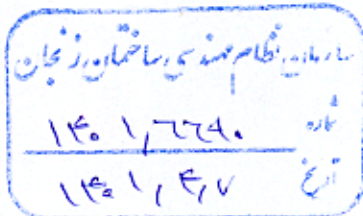 سازمان نظام مهندسی ساختمان زنجان
شماره ۱۴۰۱,۶۶۹۰
تاریخ ۱۴۰۱,۴,۷